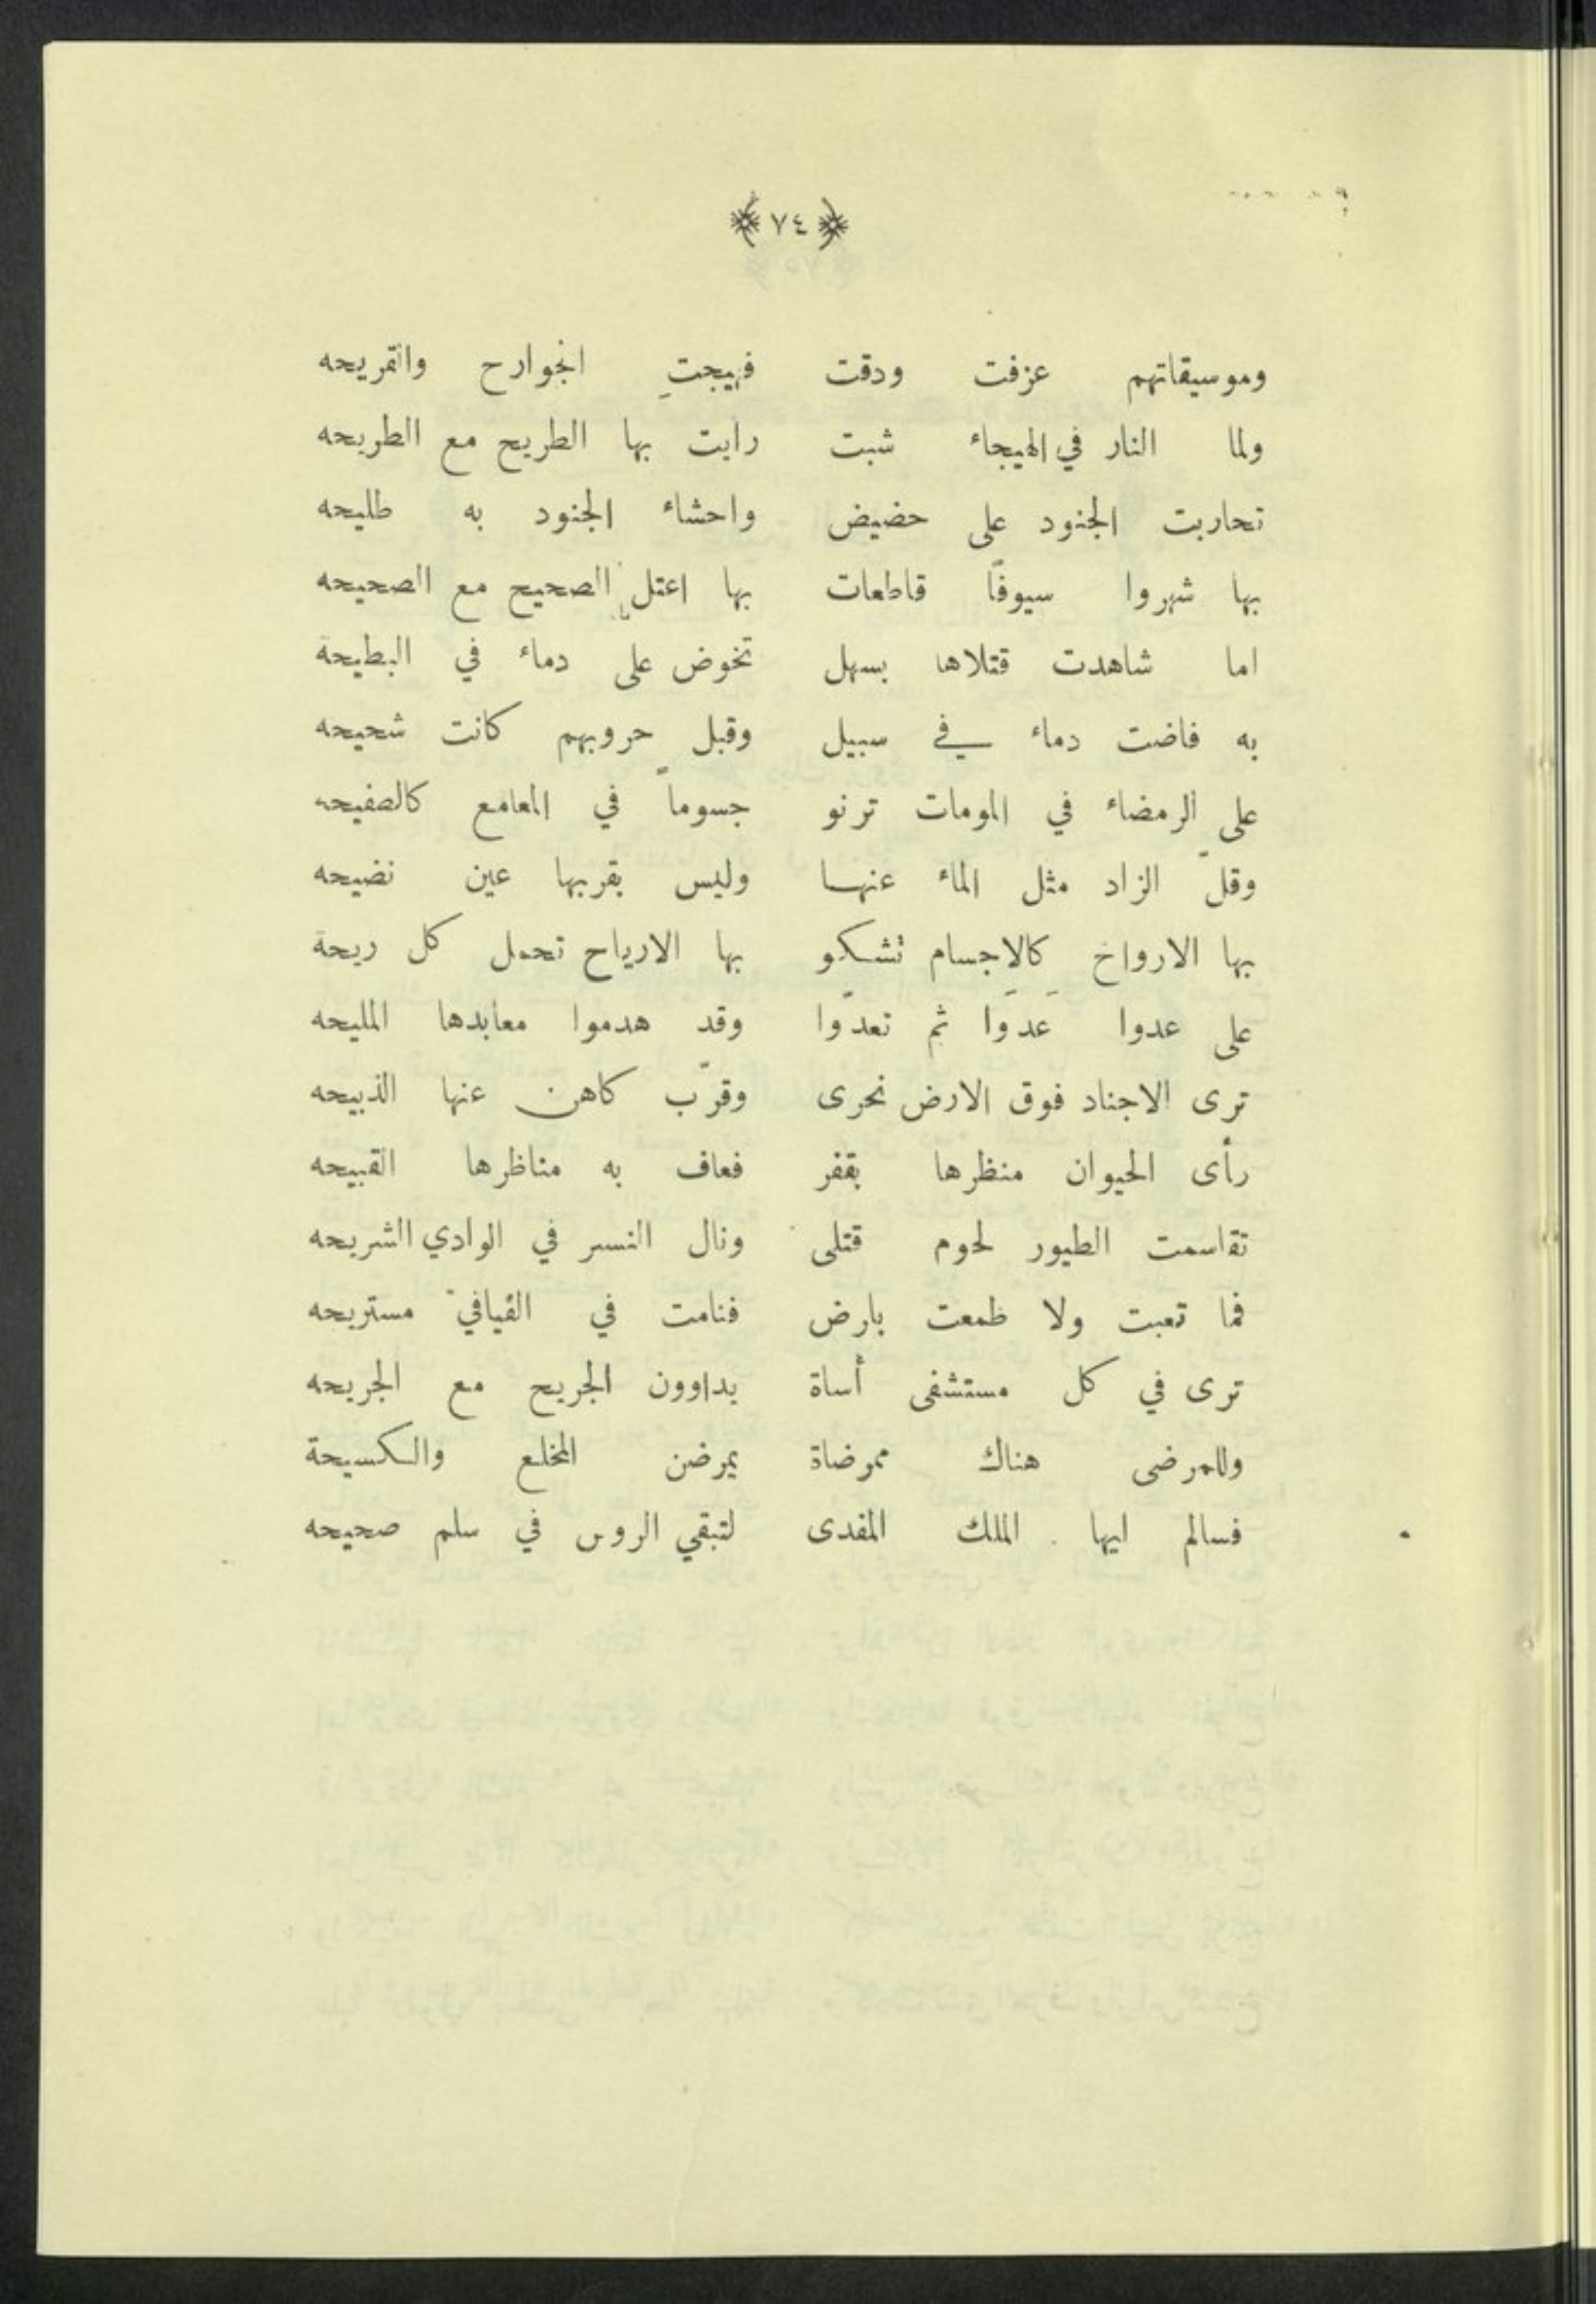 ﴿ ٧٤ ﴾
وموسيقاتهم عزفت ودقت فهيجتِ الجوارح والقريحه
ولما النار في الهيجاء شبت رايت بها الطريح مع الطريحه
تحاربت الجنود على حضيض واحشاء الجنود به طليحه
بها شهروا سيوفًا قاطعات بها اعتل الصحيح مع الصحيحه
اما شاهدت قتلاها بسهل تخوض على دماء في البطيحة
به فاضت دماء في سبيل وقبل حروبهم كانت شحيحه
على الرمضاء في المومات ترنو جسوماً في المعامع كالصفيحه
وقلّ الزاد مثل الماء عنها وليس بقربها عين نضيحه
بها الارواح كالاجسام تشكو بها الارياح تحمل كل ريحة
على عدوا عَدَوا ثم تعدّوا وقد هدموا معابدها المليحه
ترى الاجناد فوق الارض نحرى وقرّب كاهن عنها الذبيحه
رأى الحيوان منظرها بقفر فعاف به مناظرها القبيحه
تقاسمت الطيور لحوم قتلى ونال النسر في الوادي الشريحه
فما تعبت ولا طمعت بارض فنامت في الفيافي مستريحه
ترى في كل مستشفى أساة يداوون الجريح مع الجريحه
وللمرضى هناك ممرضاة يمرضن المخلع والكسيحة
فسالم ايها الملك المفدى لتبقي الروس في سلم صحيحه